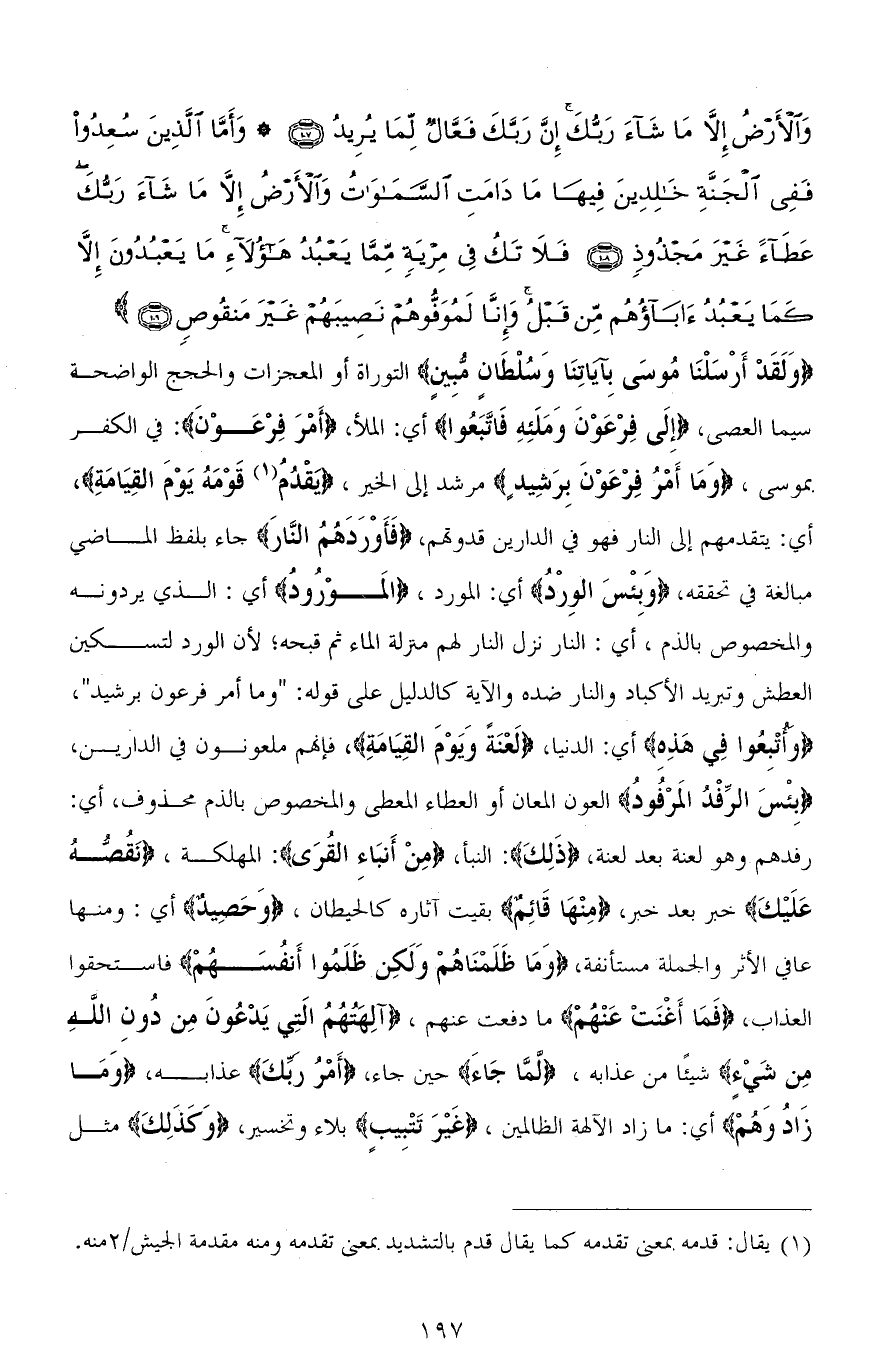 وَٱلْأَرْضُ إِلَّا مَا شَآءَ رَبُّكَ ۚ إِنَّ رَبَّكَ فَعَّالٌ لِّمَا يُرِيدُ ١٠٧ * وَأَمَّا ٱلَّذِينَ سُعِدُوا۟
فَفِى ٱلْجَنَّةِ خَـٰلِدِينَ فِيهَا مَا دَامَتِ ٱلسَّمَـٰوَٰتُ وَٱلْأَرْضُ إِلَّا مَا شَآءَ رَبُّكَ ۖ
عَطَآءً غَيْرَ مَجْذُوذٍ ١٠٨ فَلَا تَكُ فِى مِرْيَةٍ مِّمَّا يَعْبُدُ هَـٰٓؤُلَآءِ ۚ مَا يَعْبُدُونَ إِلَّا
كَمَا يَعْبُدُ ءَابَآؤُهُم مِّن قَبْلُ ۚ وَإِنَّا لَمُوَفُّوهُمْ نَصِيبَهُمْ غَيْرَ مَنقُوصٍ ١٠٩ ﴾
﴿وَلَقَدْ أَرْسَلْنَا مُوسَى بِآيَاتِنَا وَسُلْطَانٍ مُّبِينٍ﴾ التوراة أو المعجزات والحجج الواضحة
سيما العصى، ﴿إِلَى فِرْعَوْنَ وَمَلَئِهِ فَاتَّبَعُوا﴾ أي: الملأ، ﴿أَمْرَ فِرْعَوْنَ﴾: في الكفر
بموسى ، ﴿وَمَا أَمْرُ فِرْعَوْنَ بِرَشِيدٍ﴾ مرشد إلى الخير ، ﴿يَقْدُمُ(١) قَوْمَهُ يَوْمَ القِيَامَةِ﴾،
أي: يتقدمهم إلى النار فهو في الدارين قدوتهم، ﴿فَأَوْرَدَهُمُ النَّارَ﴾ جاء بلفظ الماضي
مبالغة في تحققه، ﴿وَبِئْسَ الوِرْدُ﴾ أي: المورد ، ﴿المَوْرُودُ﴾ أي : الذي يردونه
والمخصوص بالذم ، أي : النار نزل النار لهم منزلة الماء ثم قبحه؛ لأن الورد لتسكين
العطش وتبريد الأكباد والنار ضده والآية كالدليل على قوله: "وما أمر فرعون برشيد"،
﴿وَأُتْبِعُوا فِي هَذِهِ﴾ أي: الدنيا، ﴿لَعْنَةً وَيَوْمَ القِيَامَةِ﴾، فإنهم ملعونون في الدارين،
﴿بِئْسَ الرِّفْدُ المَرْفُودُ﴾ العون المعان أو العطاء المعطى والمخصوص بالذم محذوف، أي:
رفدهم وهو لعنة بعد لعنة، ﴿ذَلِكَ﴾: النبأ، ﴿مِنْ أَنبَاءِ القُرَى﴾: المهلكة ، ﴿نَقُصُّهُ
عَلَيْكَ﴾ خبر بعد خبر، ﴿مِنْهَا قَائِمٌ﴾ بقيت آثاره كالحيطان ، ﴿وَحَصِيدٌ﴾ أي : ومنها
عافي الأثر والجملة مستأنفة، ﴿وَمَا ظَلَمْنَاهُمْ وَلَكِن ظَلَمُوا أَنفُسَهُمْ﴾ فاستحقوا
العذاب، ﴿فَمَا أَغْنَتْ عَنْهُمْ﴾ ما دفعت عنهم ، ﴿آلِهَتُهُمُ الَتِي يَدْعُونَ مِن دُونِ اللَّهِ
مِن شَيْءٍ﴾ شيئًا من عذابه ، ﴿لَّمَّا جَاءَ﴾ حين جاء، ﴿أَمْرُ رَبِّكَ﴾ عذابه، ﴿وَمَا
زَادُوَهُمْ﴾ أي: ما زاد الآلهة الظالمين ، ﴿غَيْرَ تَتْبِيبٍ﴾ بلاء وتخسير، ﴿وَكَذَلِكَ﴾ مثل
(١) يقال: قدمه بمعنى تقدمه كما يقال قدم بالتشديد بمعنى تقدمه ومنه مقدمة الجيش/١٢منه.
١٩٧